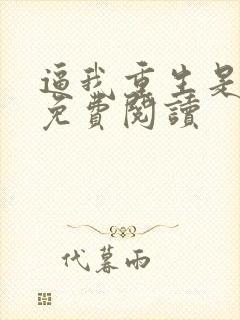 逼我重生是
免費閱讀
代暮雨